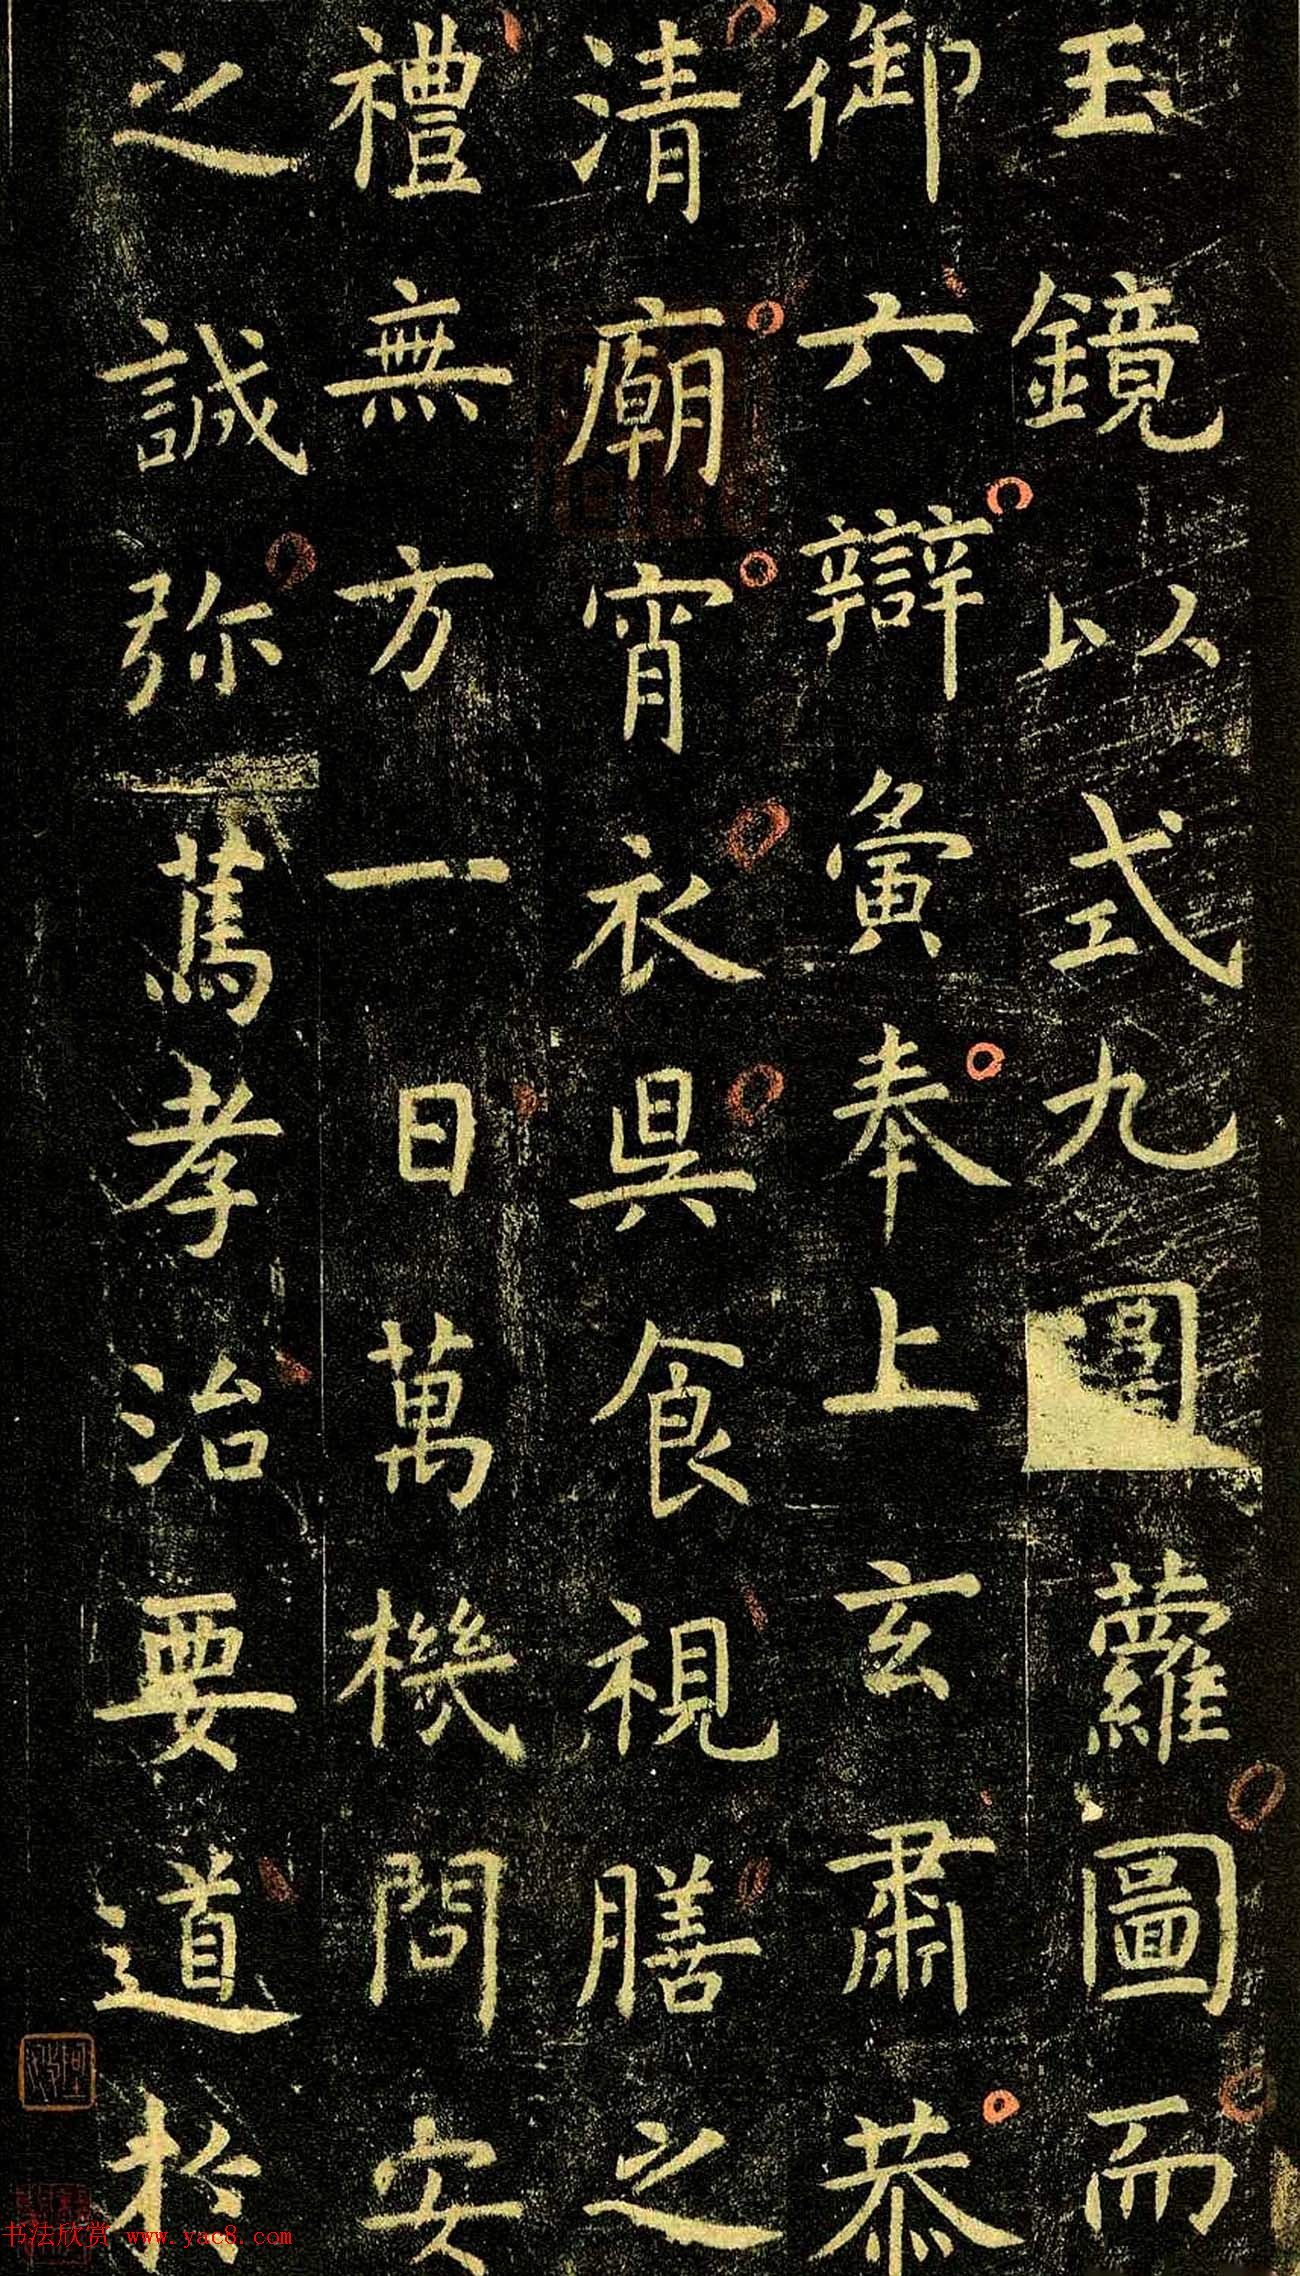 玉鏡以式九圍蘿圖而
御六辯彙奉上玄肅恭
清廟宵衣昃食視膳之
禮無方一日萬機問安
之誠弥篤孝治要道於
书法欣赏 www.yac8.com